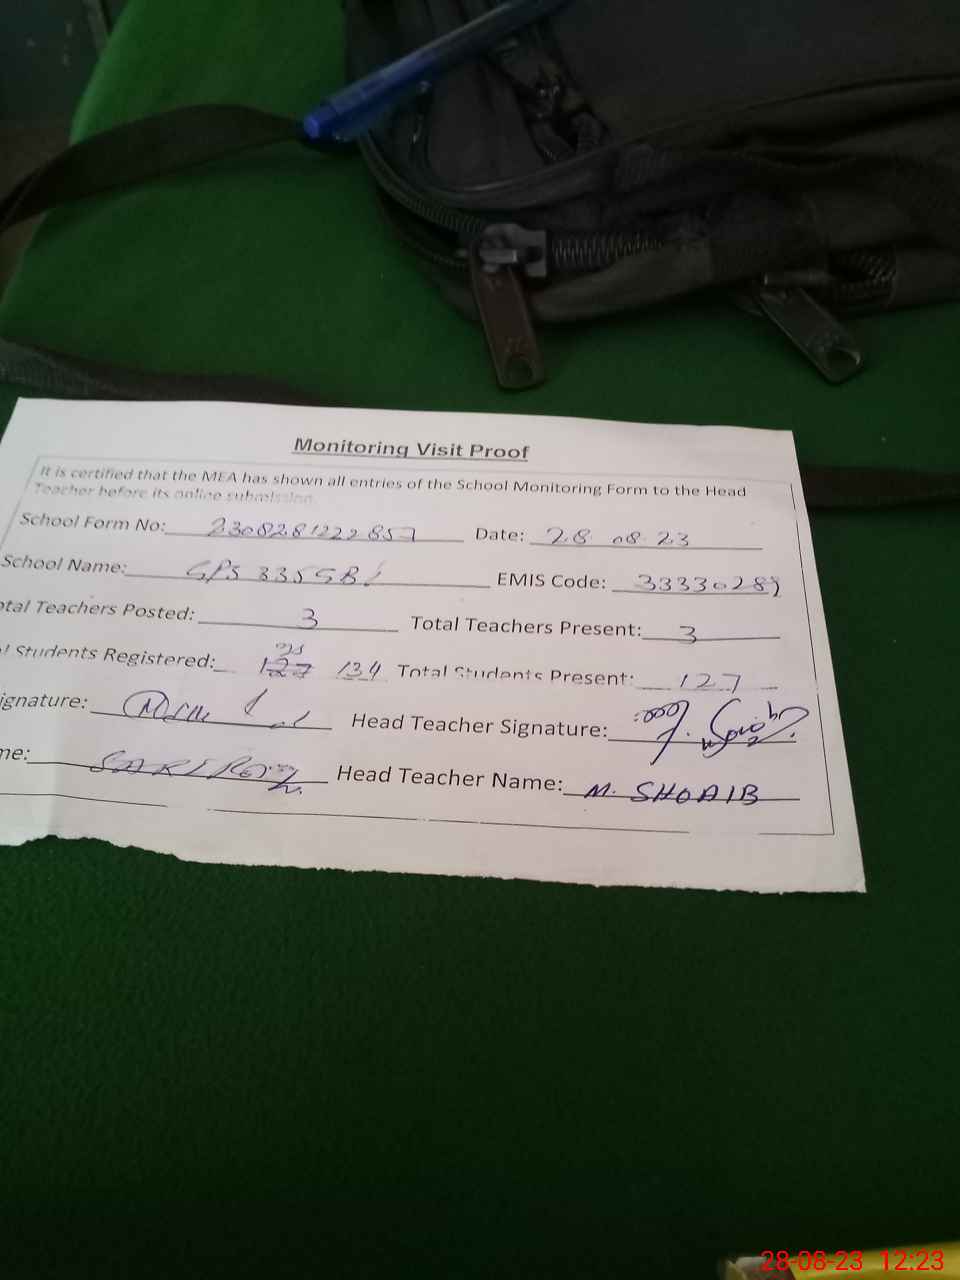 Monitoring Visit Proof
It is certified that the MEA has shown all entries of the School Monitoring Form to the Head
Teacher before its online submission.
School Form No: 2308281222857 Date: 28 08 23
School Name: GPS 335 GB EMIS Code: 3333028
otal Teachers Posted: 3 Total Teachers Present: 3
l Students Registered: 127 134 Total Students Present: 127
ignature: Head Teacher Signature:
me: Head Teacher Name: M. SHOAIB
28-08-23 12:23